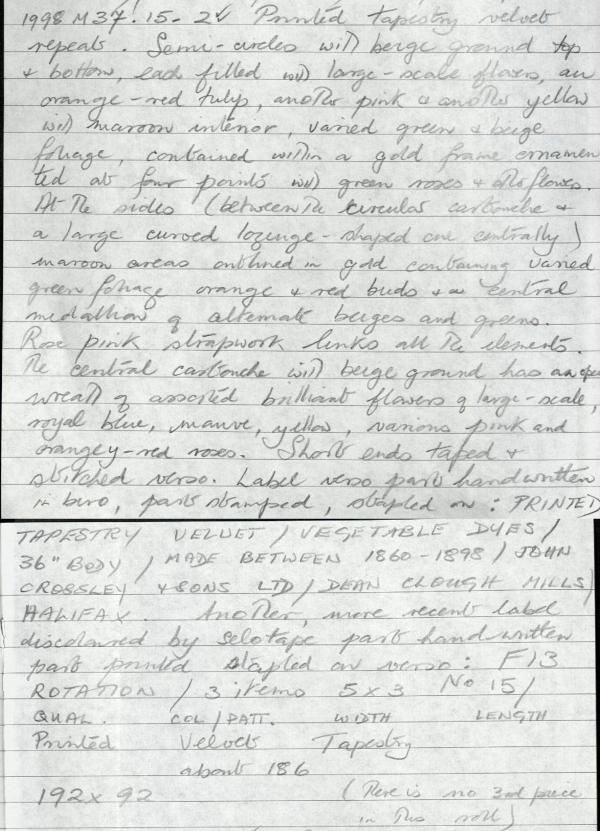 1998 M37.15-2 Printed tapestry velvet
repeats. Semi-circles with beige ground top
& bottom, each filled with large-scale flowers, an
orange-red tulip, another pink & another yellow
with maroon interior, varied green & beige
foliage, contained within a gold frame ornamen
ted at four points with green roses & other flowers.
At the sides (between the circular cartouche &
a large curved lozenge-shaped one centrally)
maroon areas outlined in gold containing varied
green foliage orange & red buds & a central
medallion of alternate beiges and greens.
Rose pink strapwork links all the elements.
The central cartouche with beige ground has an open
wreath of assorted brilliant flowers of large-scale,
royal blue, mauve, yellow, various pink and
orangey-red roses. Short ends taped &
stitched verso. Label verso part handwritten
in biro, part stamped, stapled on: PRINTED
TAPESTRY VELVET / VEGETABLE DYES /
36" BODY / MADE BETWEEN 1860-1898 / JOHN
CROSSLEY & SONS LTD / DEAN CLOUGH MILLS /
HALIFAX. Another, more recent label
discoloured by selotape part handwritten
part printed stapled on verso: F13
ROTATION / 3 items 5x3 No 15 /
QUAL. COL/PATT. WIDTH LENGTH
Printed Velvet Tapestry
about 186
192 x 92 (There is no 3rd piece
in this roll)